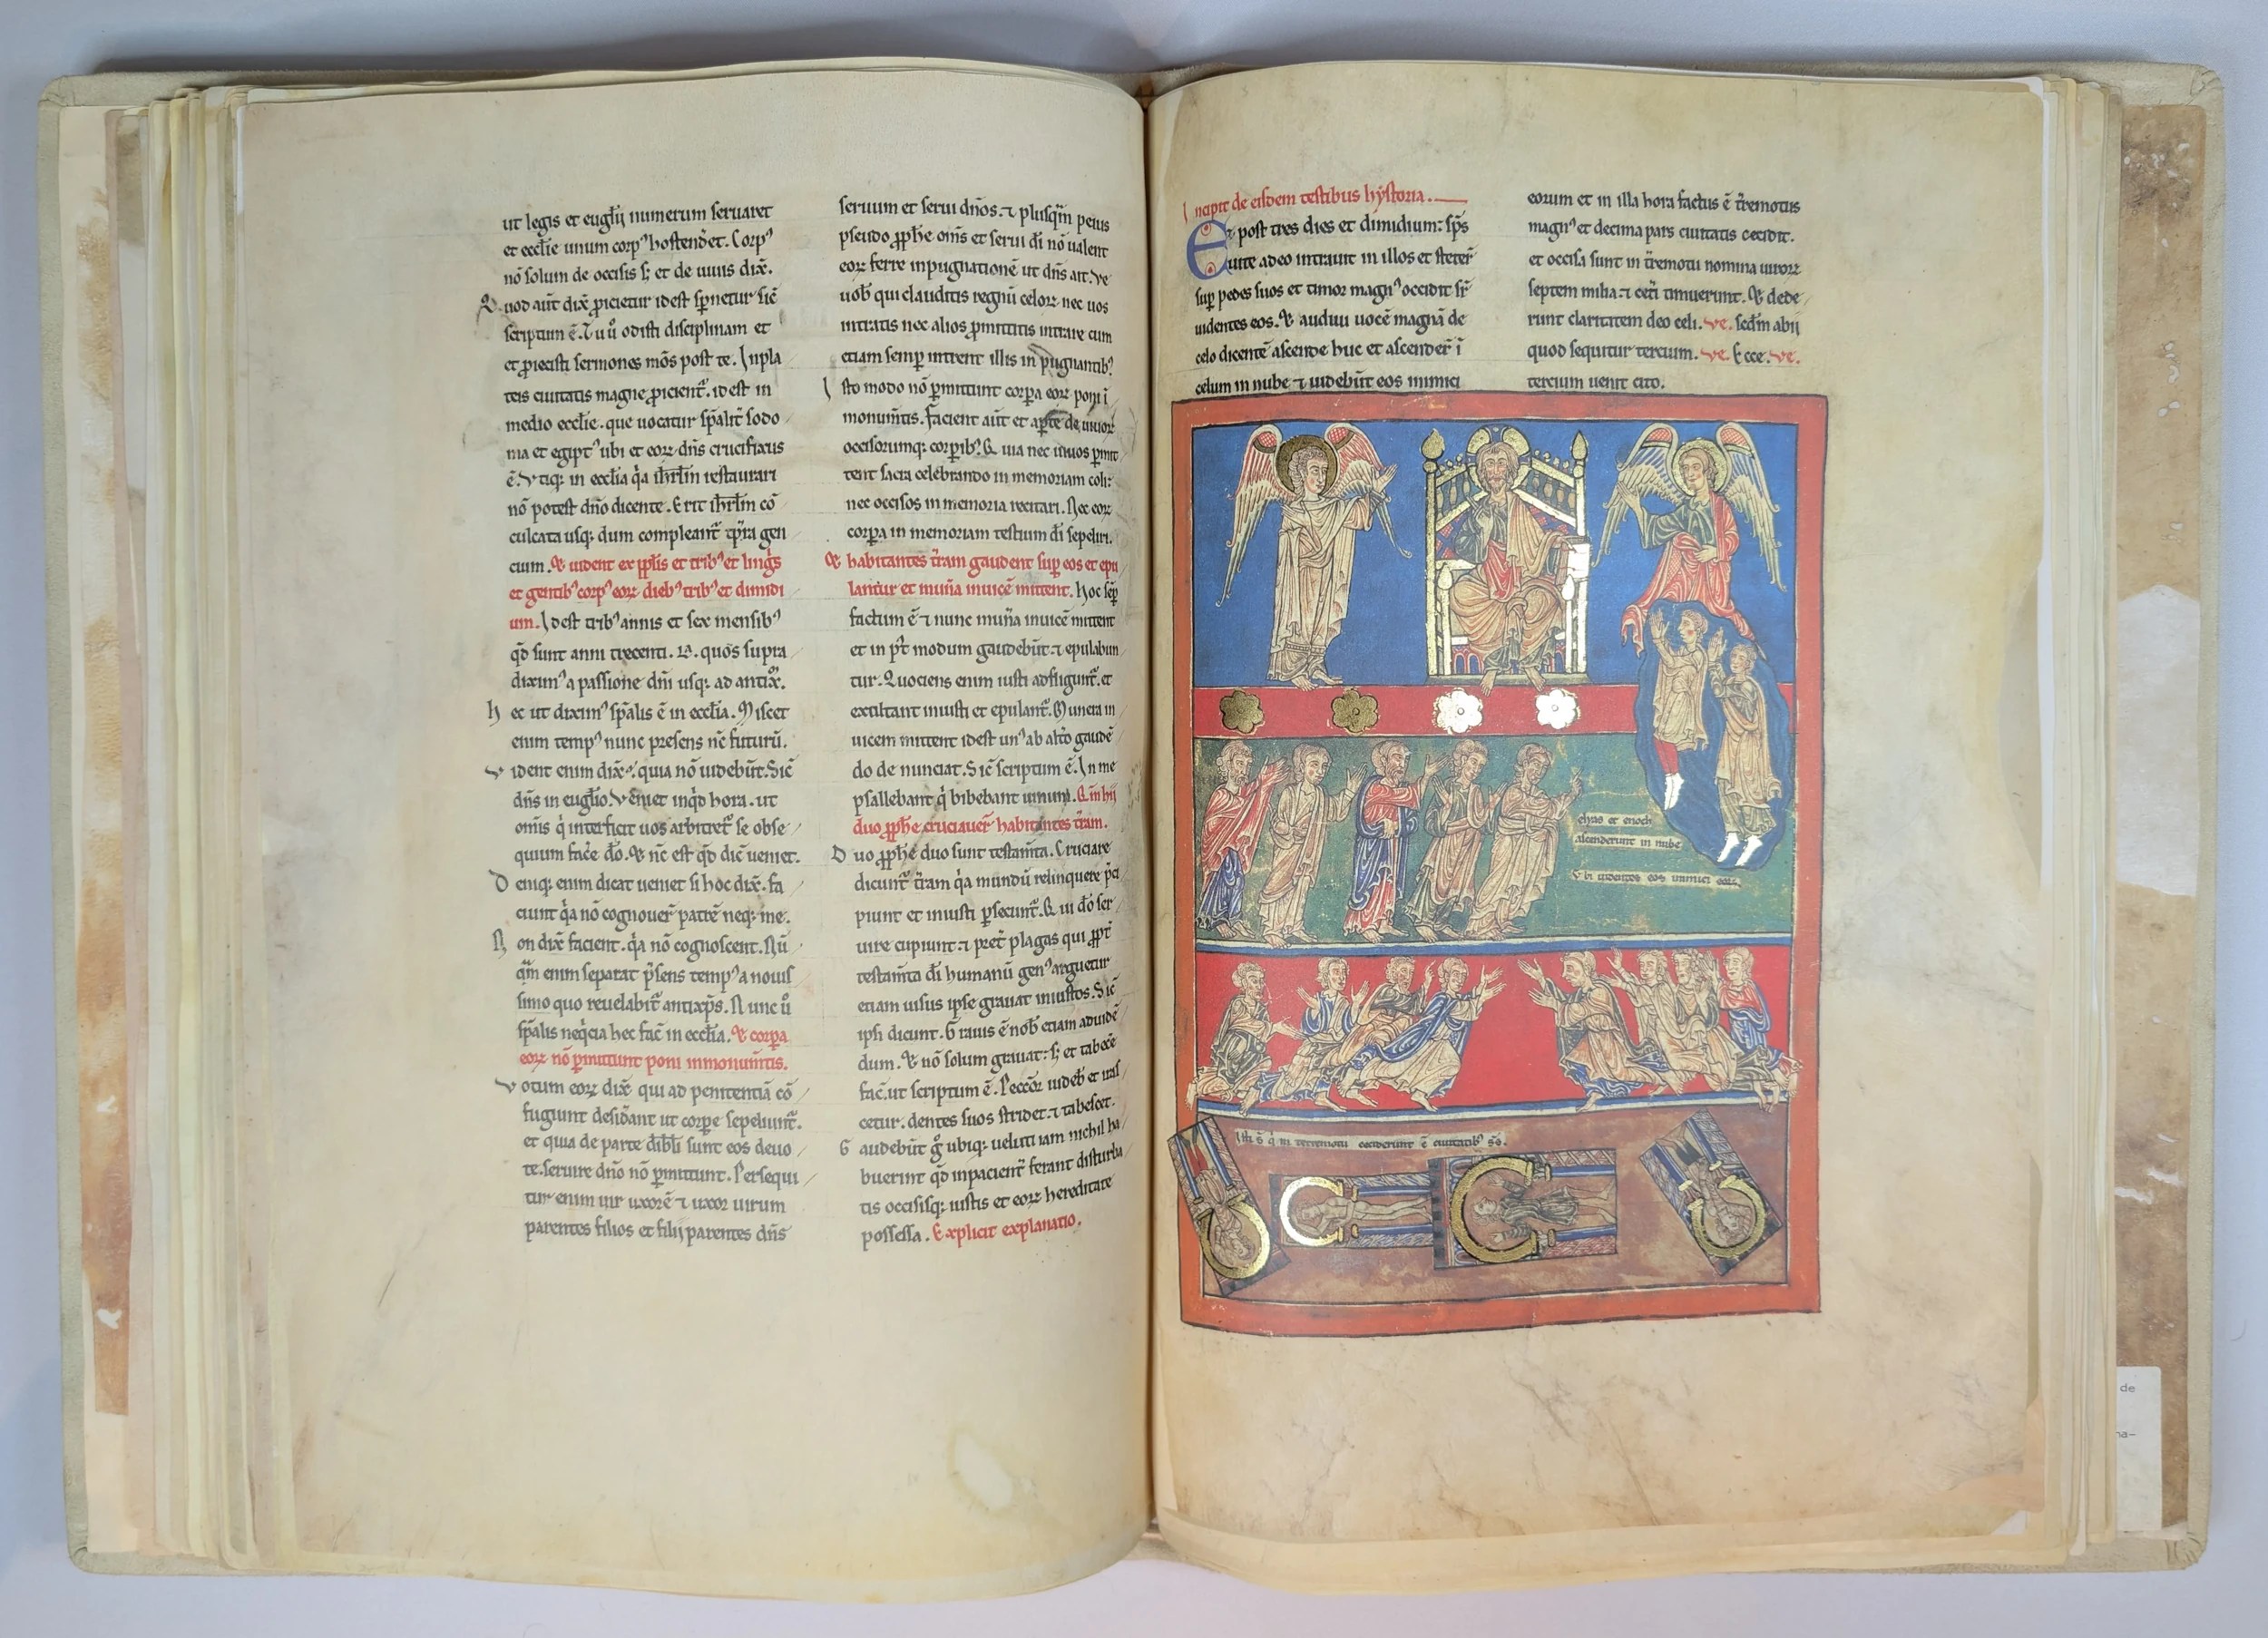 ut legis et euglĳ numerum seruaret
et eccl̃ie unum corpꝰ hostenderet. Corpꝰ
nō solum de occisis s; et de uiuis dix̃.
Quod aūt dix̃ ꝓicietur idest sp̃netur sic̃
scriptum ē. Tu u̾ odisti disciplinam et
et ꝓiecisti sermones mōs post te. In pla
teis ciuitatis magne ꝓicient̃. idest in
medio eccl̃ie. que uocatur sp̃alit̃ sodo
ma et egiptꝰ ubi et eoꝝ dn̄s crucifixus
ē. Vtiqꝫ in eccl̃ia q̾a ih̃rl̃m restaurari
nō potest dn̄o dicente. Erit ih̃rl̃m cō
culcata usqꝫ dum compleant̃ tp̃ra gen
cium. Et uident ex pp̃lis et tribꝰ et lingis
et gentibꝰ corpꝰ eoꝝ diebꝰ tribꝰ et dimidi
um. Idest tribꝰ annis et sex mensibꝰ
qd̃ sunt anni trecenti. L. quos supra
diximꝰ a passione dn̄i usqꝫ ad antix̃.
hec ut diximꝰ sp̃alis ē in eccl̃ia. Miscet
enim tempꝰ nunc presens nc̃ futurū.
Vident enim dix̃. quia nō uidebūt. Sic̃
dn̄s in euglio. Veniet inqd̃ hora. ut
om̃is q̾ interficit uos arbitret̃ se obse
quium face̾ do̾. Et nc̃ est qd̃ dic̃ ueniet.
Deniqꝫ enim dicat ueniet si hoc dix̃. fa
ciunt q̾a nō cognouer̃ patrē neqꝫ me.
Non dix̃ facient. q̾a nō cognoscent. Nū
qm̃ enim separat p̃sens tempꝰ a nouis
simo quo reuelabit̃ antixp̃s. Nunc u̾
sp̃alis neq̾cia hec fac̃ in eccl̃ia. Et corꝑa
eoꝝ nō ꝑmittunt poni in monum̃tis.
Votum eoꝝ dix̃ qui ad penitentiā cō
fugiunt desid̃ant ut corꝑe sepeliunt̃.
et quia de parte diab̃li sunt eos deuo
te. seruire dn̄o nō ꝑmittunt. Persequi
tur enim uir uxorē ⁊ uxor uirum
parentes filios et filĳ parentes dn̄s
seruum et serui dn̄os. ⁊ plusqm̃ peius
pseudo ꝓph̃e om̃s et serui di̾ nō ualent
eoꝝ ferre inpugnationē ut dn̄s ait. Ve
uob̃ qui clauditis regnū celoꝝ nec uos
intratis nec alios ꝑmittitis intrare cum
etiam semꝑ intrent illis inpugnantibꝰ
Isto modo nō ꝑmittunt corꝑa eoꝝ poni ī
monum̃tis. Facient aūt et aꝑte de uiuoꝝ
occisorumqꝫ corꝑibꝰ. Quia nec uiuos ꝑmit
tent sacra celebrando in memoriam coli:
nec occisos in memoria recitari. Nec eoꝝ
corꝑa in memoriam testium di̾ sepeliri.
Et habitantes t̃ram gaudent suꝑ eos et epu
lantur et mun̄a inuicē mittent. hoc seꝑ
factum ē ⁊ nunc mun̄a inuicē mittent
et in pr̃ modum gaudebūt. ⁊ epulabun
tur. Quociens enim iusti adfligunt̃. et
exultant iniusti et epulant̃. Munera in
uicem mittent idest unꝰ ab alt̾o gaude
do de nunciat. Sic̃ scriptum ē. In me
psallebant q̾ bibebant uinum. Qm̃ hĳ
duo ꝓph̃e cruciauer̃ habitantes t̃ram.
Duo ꝓph̃e duo sunt testam̃ta. Cruciare
dicunt̃ t̃ram q̾a mundū relinquere p̾ci
piunt et iniusti ꝑsecunt̃. Qui do̾ ser
uire cupiunt. ⁊ pret̃ plagas qui ꝓpt̃
testam̃ta di̾ humanū genꝰ arguetur
etiam uisus ipse grauat iniustos. Sic̃
ipsi dicunt. Grauis ē nob̃ etiam aduidē
dum. Et nō solum grauat: s; et tabece̾
fac̃. ut scriptum ē. Peccōr uideb̃ et iras
cetur. dentes suos stridet. ⁊ tabescet.
Gaudebūt g̾ ubiqꝫ. ueluti iam nichil ha
buerint qd̃ inpacient̃ ferant disturba
tis occisisqꝫ iustis et eoꝝ hereditate
possessa. Explicit explanatio.
Incipit de eisdem testibus hẏstoria.
Et post tres dies et dimidium: sp̃s
uite adeo intrauit in illos et steter̃
suꝑ pedes suos et timor magnꝰ occidit sr̃
uidentes eos. Et audiui uocē magnā de
celo dicentē ascende huc et ascender̃ ī
celum in nube ⁊ uidebūt eos inimici
eorum et in illa hora factus ē t̃remotus
magnꝰ et decima pars ciuitatis cecidit.
et occisa sunt in t̃remotu nomina uiroꝝ
septem milia. ⁊ cet̃i timuerunt. Et dede
runt claritatem deo celi. Ve. secd̃m abĳ
quod sequitur tercium. Ve. Ecce. Ve.
tercium uenit cito.
elyas et enoch
ascenderunt in nube
Vbi uidentes eos inimici eoꝝ.
Isti s̄ q̾ in terremotu ceciderunt ē ciuitatibꝰ sōs.
de
na–